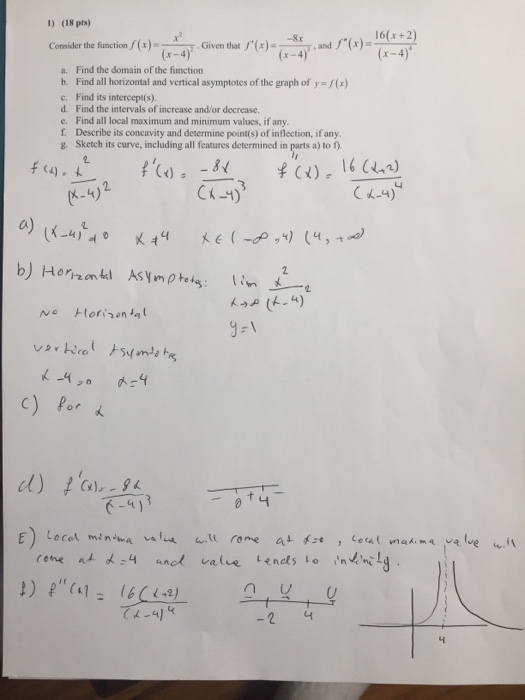 1) (18 pts)
Consider the function f(x) = x²/(x-4)². Given that f'(x) = -8x/(x-4)³, and f"(x) = 16(x+2)/(x-4)⁴
a. Find the domain of the function
b. Find all horizontal and vertical asymptotes of the graph of y = f(x)
c. Find its intercept(s).
d. Find the intervals of increase and/or decrease.
e. Find all local maximum and minimum values, if any.
f. Describe its concavity and determine point(s) of inflection, if any.
g. Sketch its curve, including all features determined in parts a) to f).
f(x) = x²/(x-4)² f'(x) = -8x/(x-4)³ f"(x) = 16(x+2)/(x-4)⁴
a) (x-4)² ≠ 0 x ≠ 4 x ∈ (-∞, 4) (4, +∞)
b) Horizontal Asymptotes: lim x→∞ x²/(x-4)²
No Horizontal y=1
vertical Asymptotes
x-4=0 x=4
c) for x
d) f'(x) = -8x/(x-4)³ - 0 + 4 -
E) Local minima value will come at x=0, local maxima value will
come at x=4 and value tends to infinity.
f) f"(x) = 16(x+2)/(x-4)⁴ ∩ ∪ ∪
-2 4
4